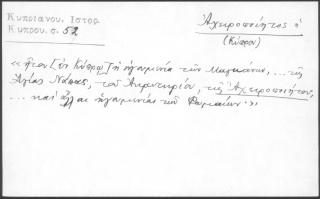 Κυπριανου. Ιστορ.
Κυπρου. σ. 52
Ἀχειροποιήτος ἡ
(Κύπρου)
«ἦτον [ἐν Κύπρῳ] ἡ ἡγουμενία τῶν Μαγκάνων, ... τῆς
Ἁγίας Νάπας, τοῦ Ἀκρωτηρίου, τῆς Ἀχειροποιήτου,
... καὶ ἄλλαι ἡγουμενίαι τῶν Ῥωμαίων.»